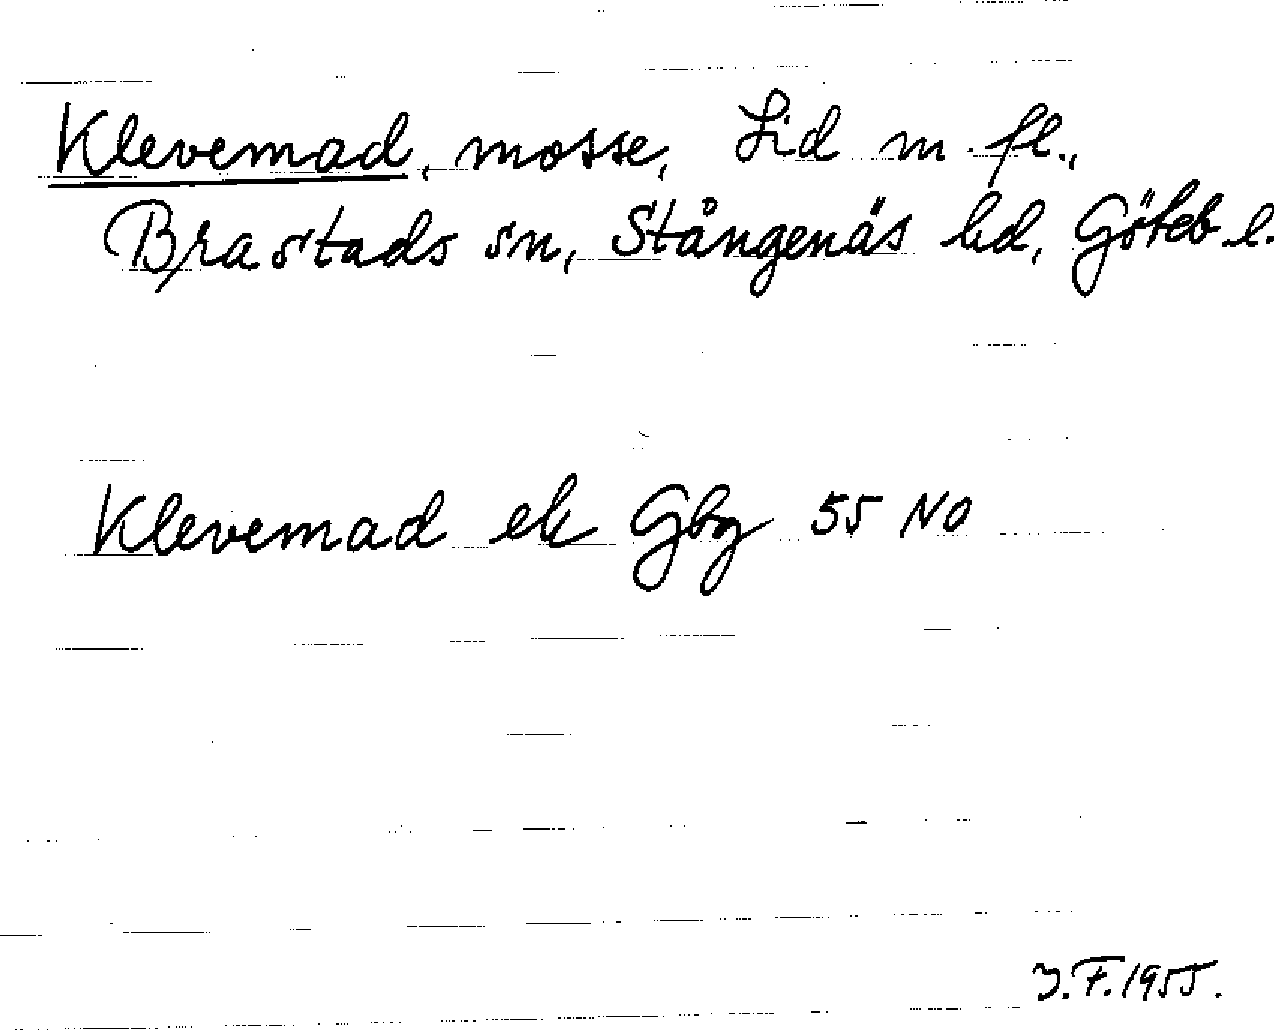 Klevemad, mosse, Lid m fl.,
Brastads sn, Stångenäs hd, Göteb l.
Klevemad ek Gbg 55 NO
J.F. 1955.